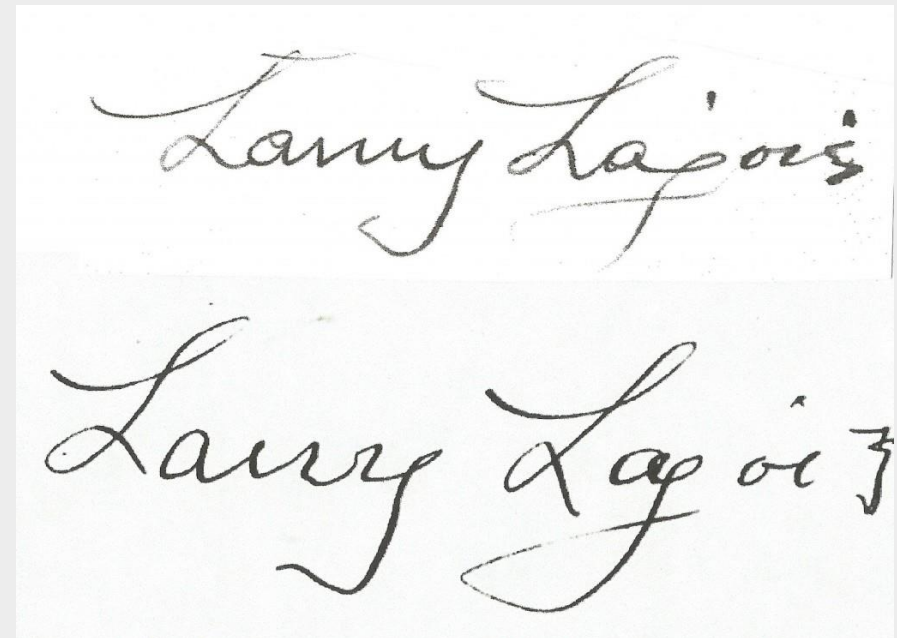 Larry Lajois
Larry Lajois